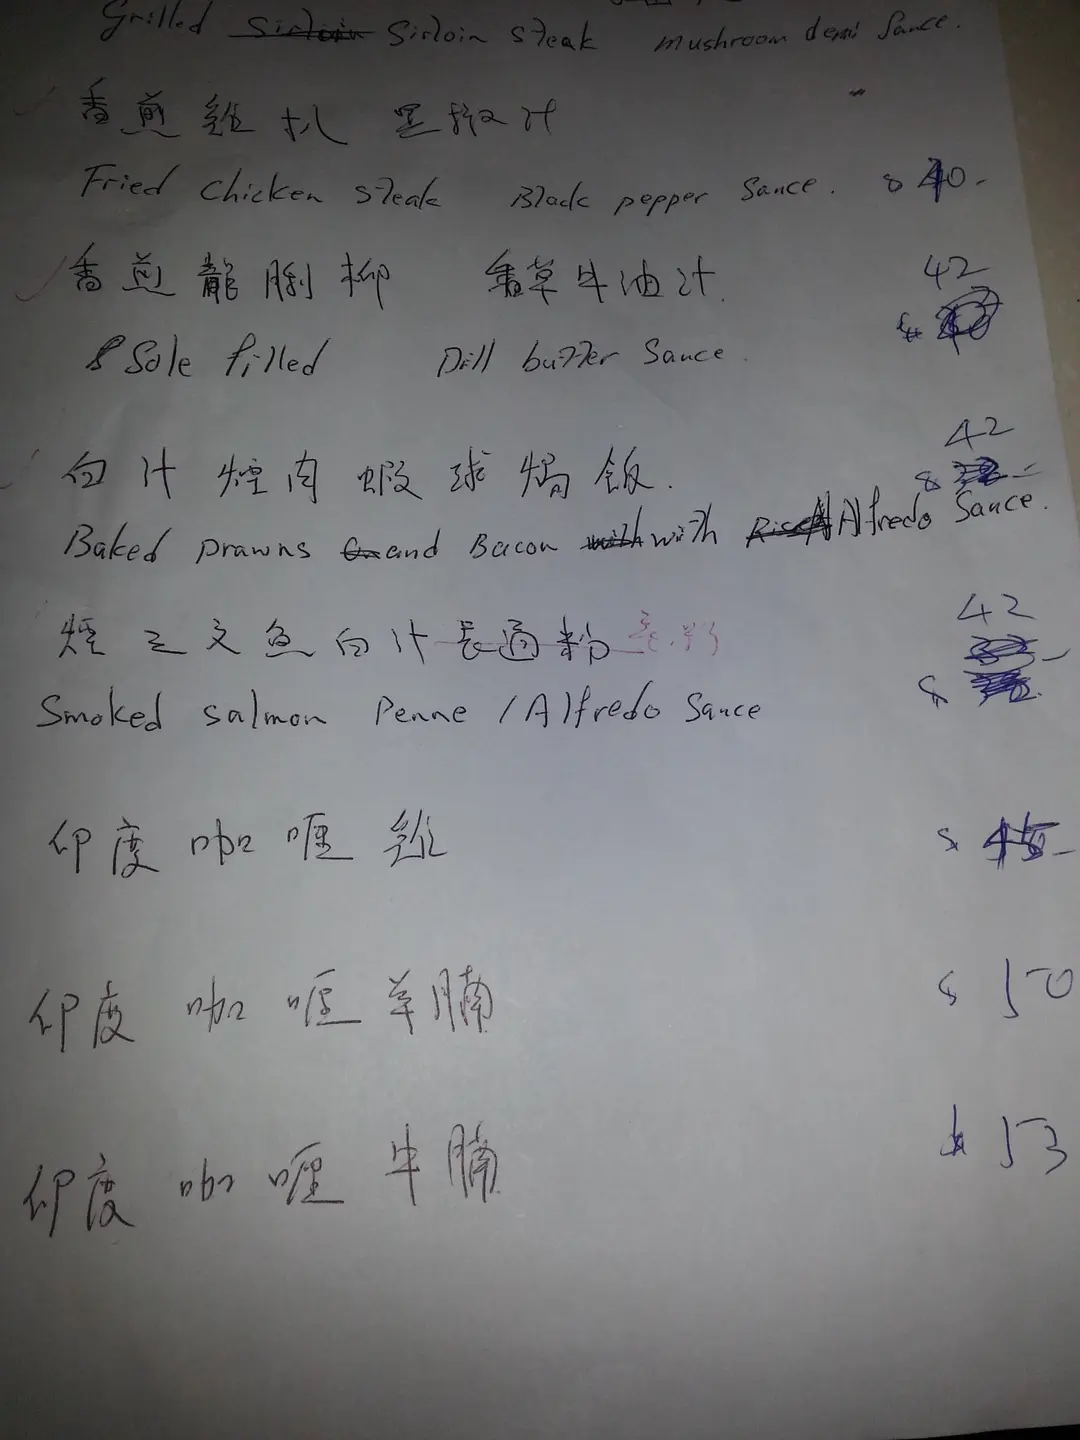 Grilled Sirloin Sirloin steak mushroom demi Sauce.
香煎雞扒 黑椒汁
Fried chicken steak Black pepper Sauce. $40-
香煎龍脷柳 香草牛油汁. 42
Sole filled Dill butter Sauce.
白汁煙肉蝦球焗飯. 42
Baked prawns and Bacon with with Alfredo Sauce.
煙三文魚白汁長通粉 意粉 42
Smoked salmon Penne / Alfredo Sauce
印度咖喱雞 $ 45-
印度咖喱羊腩 $ 50
印度咖喱牛腩 $ 53